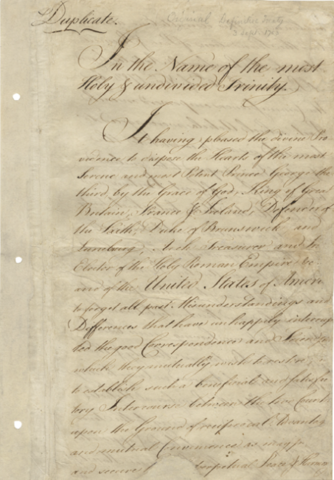 Duplicate.
In the Name of the most
Holy & undivided Trinity.
It having pleased the divine Pro
vidence to dispose the Hearts of the most
Serene and most Potent Prince George the
third, by the Grace of God, King of Great
Britain, France & Ireland, Defender of
the Faith, Duke of Brunswick and
Luneburg, Arch Treasurer and
Elector of the Holy Roman Empire
and of the United States of Amer
to forget all past Misunderstandings and
Differences that have unhappily interrup
ted the good Correspondence and
which they mutually wish to
to establish such a beneficial and
tory Intercourse between the two Count
upon the Ground of reciprocal
and mutual Convenience as may
and secure Perpetual Peace &